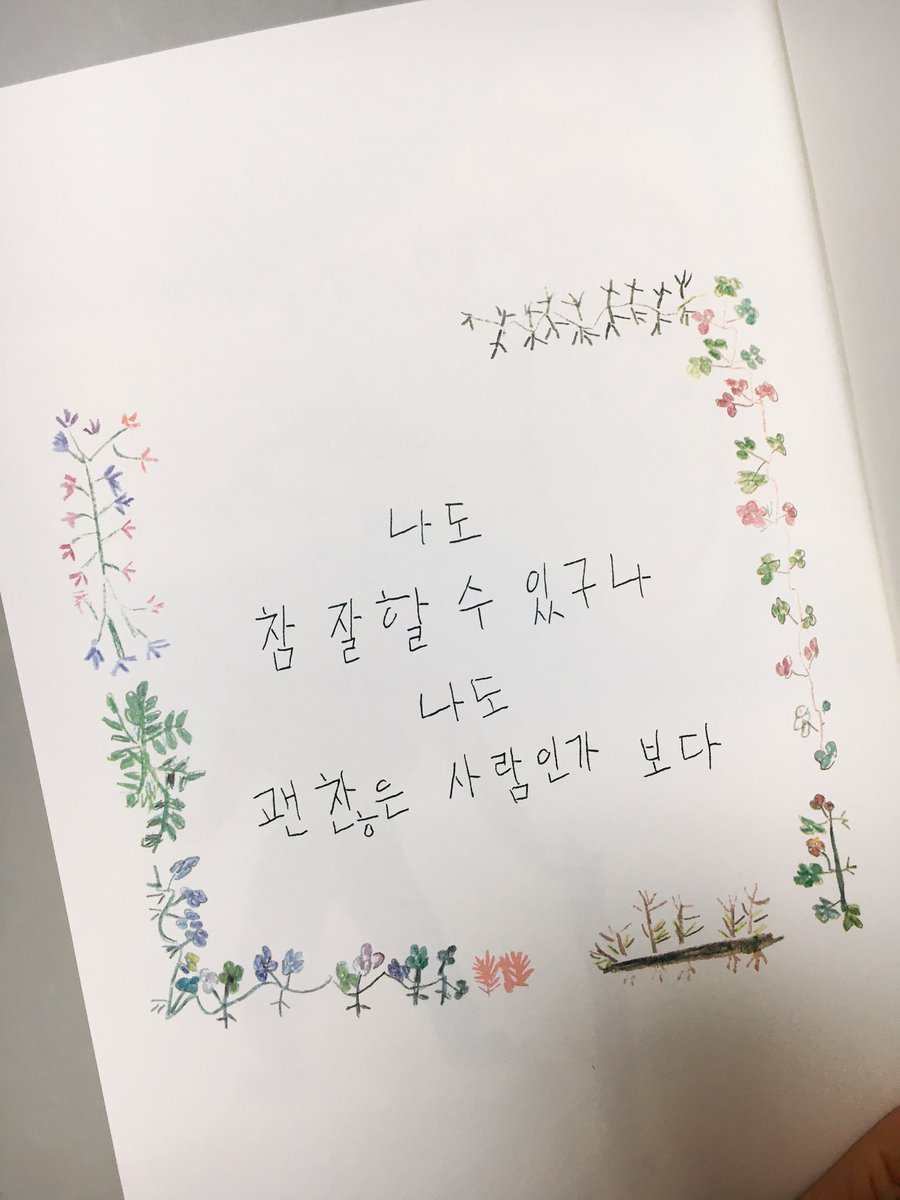 나도
참 잘할 수 있구나
나도
괜찮은 사람인가 보다